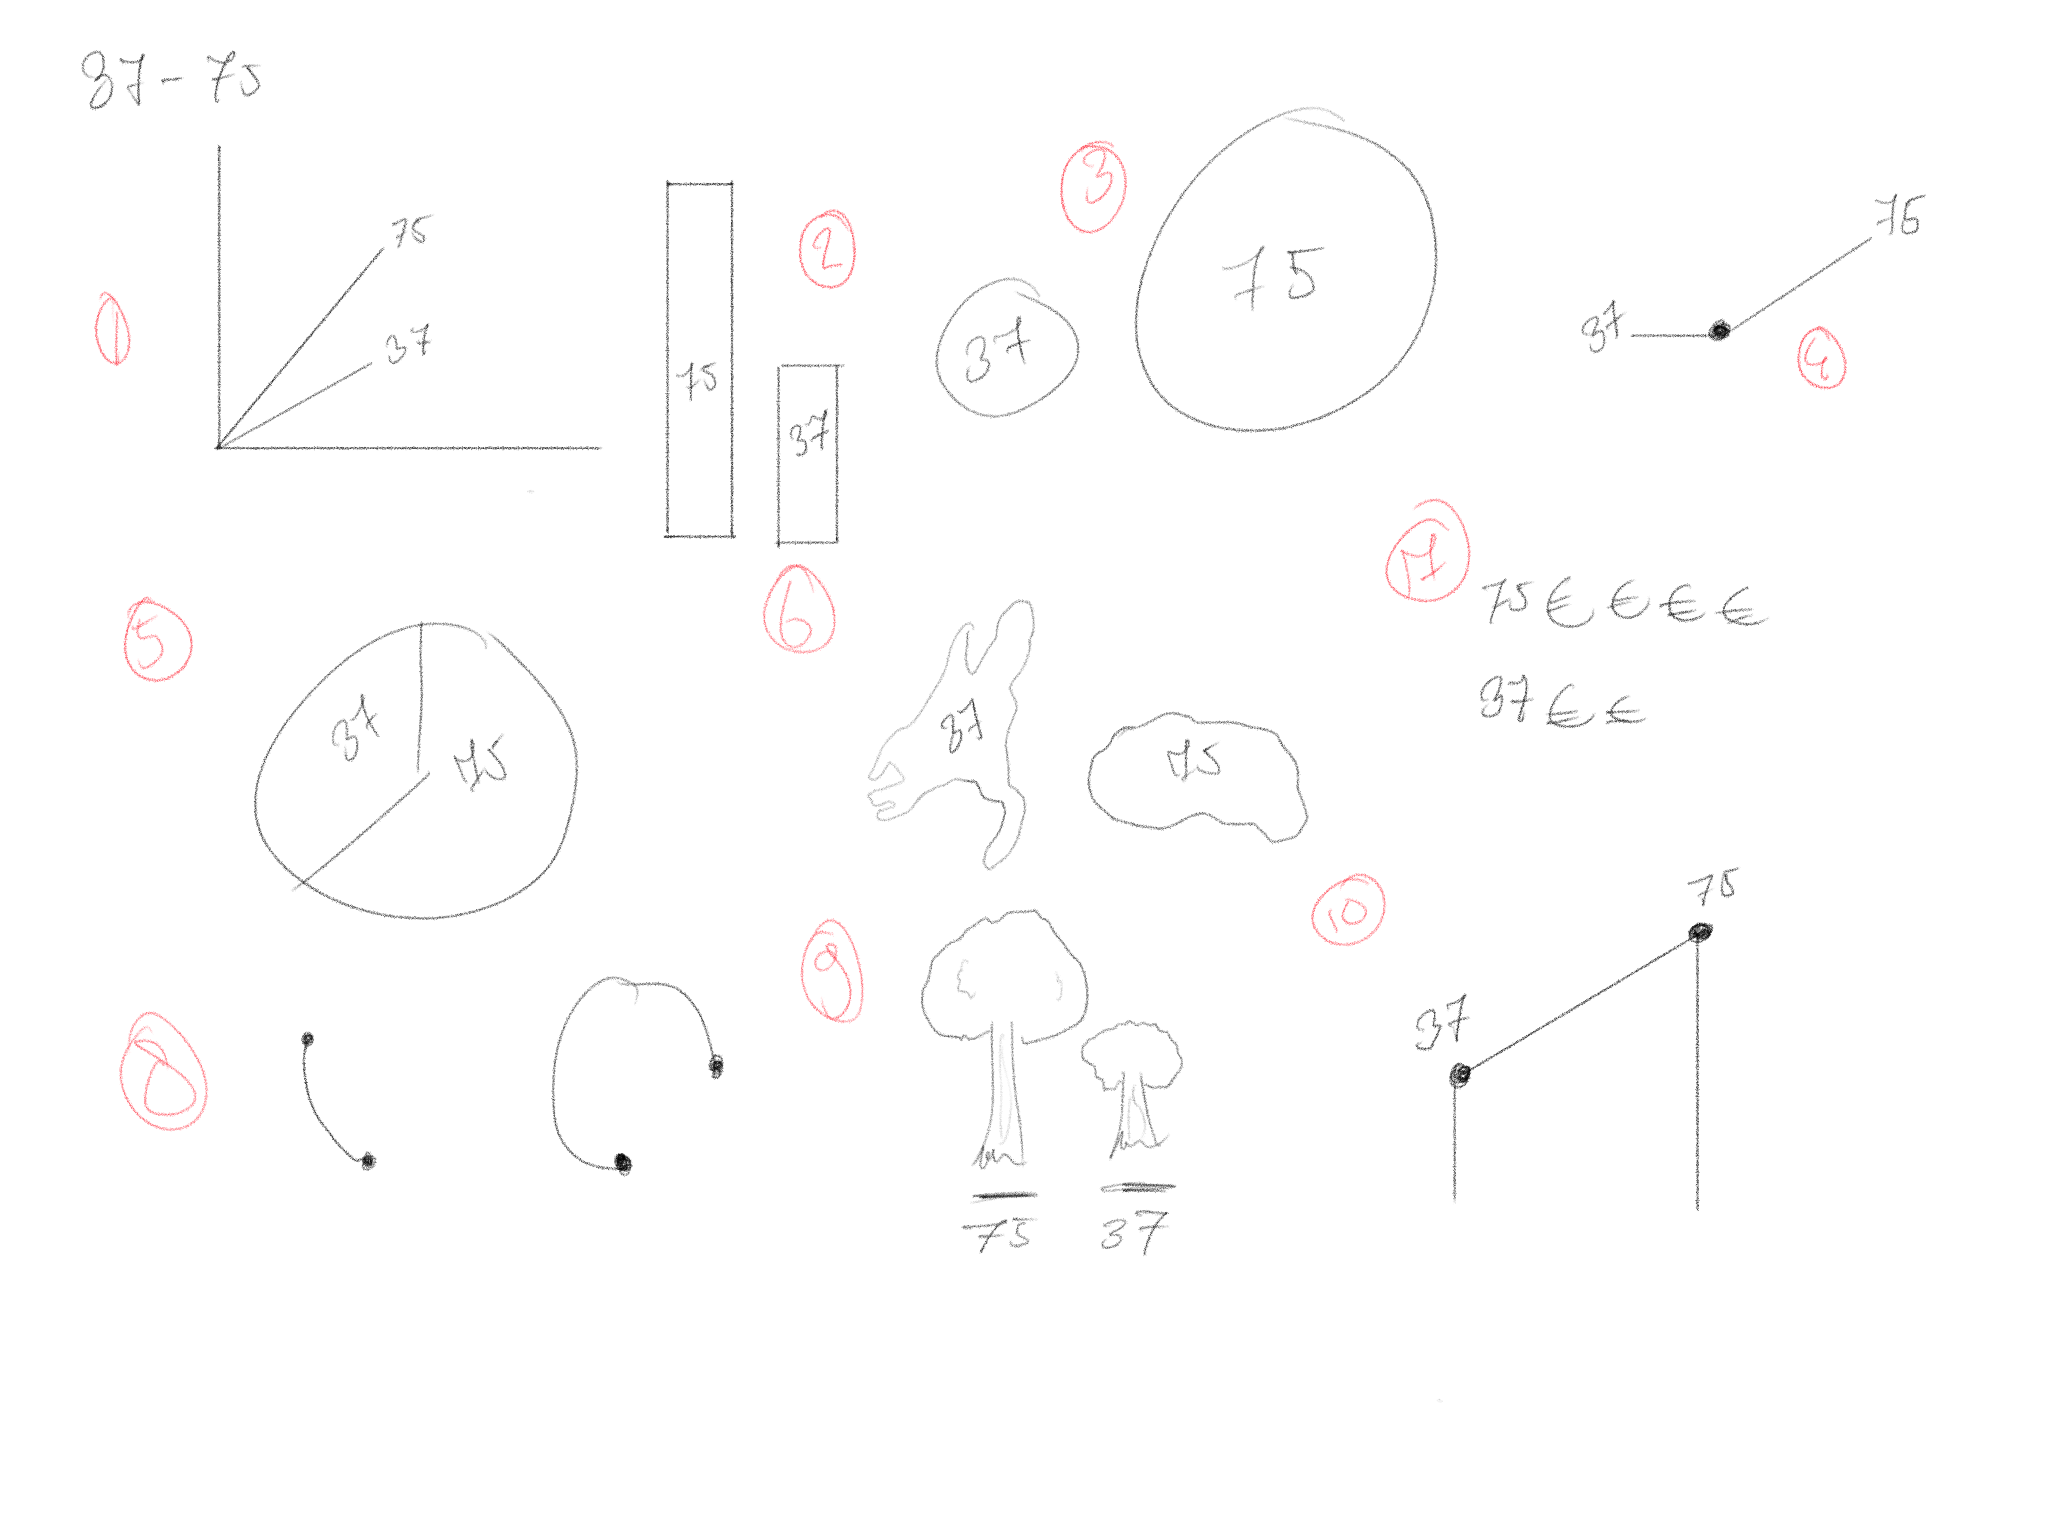 37 - 75
1
75
37
2
75
37
3
37
75
4
37
75
5
37
75
6
37
75
7
75 € € € €
37 € €
8
9
75
37
10
37
75